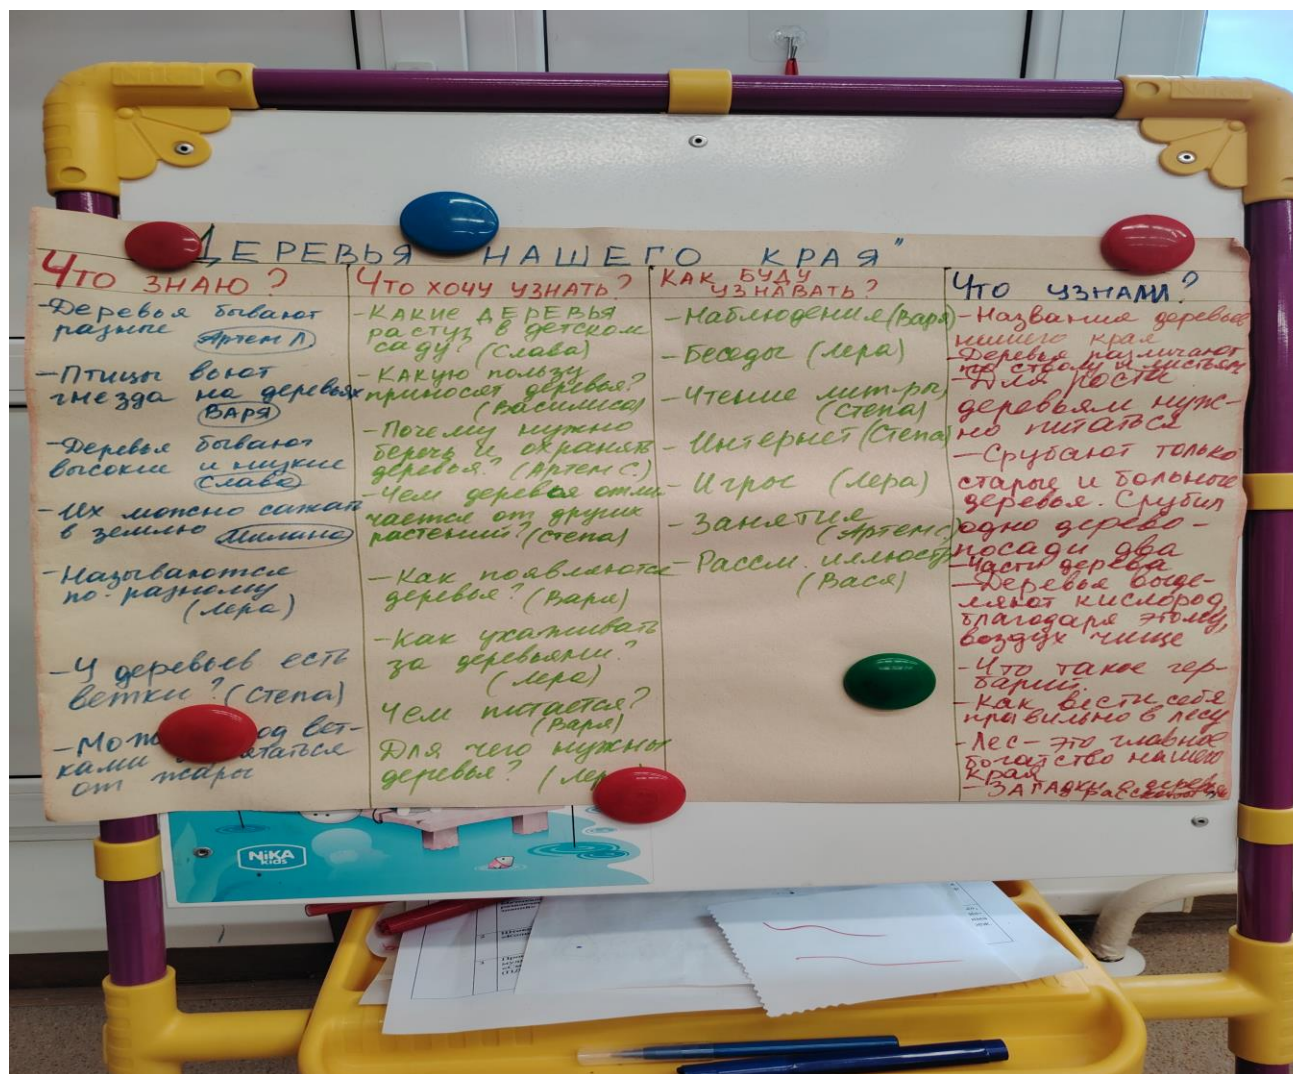 "ДЕРЕВЬЯ НАШЕГО КРАЯ"
Что знаю?
-Деревья бывают
разные Артем Л
-Птицы вьют
гнезда на деревьях
ВАРЯ
-Деревья бывают
высокие и низкие
Слава
-Их можно сажать
в землю Милана
-Называются
по-разному
(Лера)
-У деревьев есть
ветки? (Степа)
-Мож под вет-
ками
от жары
Что хочу узнать?
-КАКИЕ ДЕРЕВЬЯ
растут в детском
саду? (Слава)
-КАКУЮ пользу
приносят деревья?
(Василиса)
-Почему нужно
беречь и охранять
деревья? (Артем С.)
-Чем деревья отли-
чается от других
растений? (Степа)
-Как появляются
деревья? (Варя)
-Как ухаживать
за деревьями?
(Лера)
Чем питается?
(Варя)
Для чего нужны
деревья? (Лер
КАК БУДУ
УЗНАВАТЬ?
-Наблюдения (Варя)
-Беседы (Лера)
-Чтение лит-ры
(Степа)
-Интернет (Степа)
-Игры (Лера)
-Занятия
(Артем С.)
-Рассм. иллюстр
(Вася)
Что узнали?
-Названия деревьев
нашего края
-Деревья различают
по стволу и листьям
-Для роста
деревьям нуж-
но питаться
-Срубают только
старые и больные
деревья. Срубил
одно дерево-
посади два
-Части дерева
-Деревья выде-
ляют кислород,
благодаря этому,
воздух чище
-Что такое гер-
барий.
-Как вести себя
правильно в лесу
-Лес-это главное
богатство нашего
края
-ЗАГАДКИ
NiKA
kids